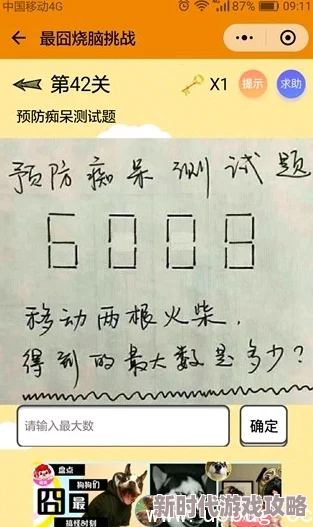 中国移动4G 87% 09:11
最囧烧脑挑战
第42关 X1 提示 求助
预防痴呆测试题
预防痴呆测试题
6008
移动两根火柴,
得到的最大数是多少?
请输入最大数 确定
盘点
狗狗们
囧 最
搞怪时刻
新时代游戏攻略